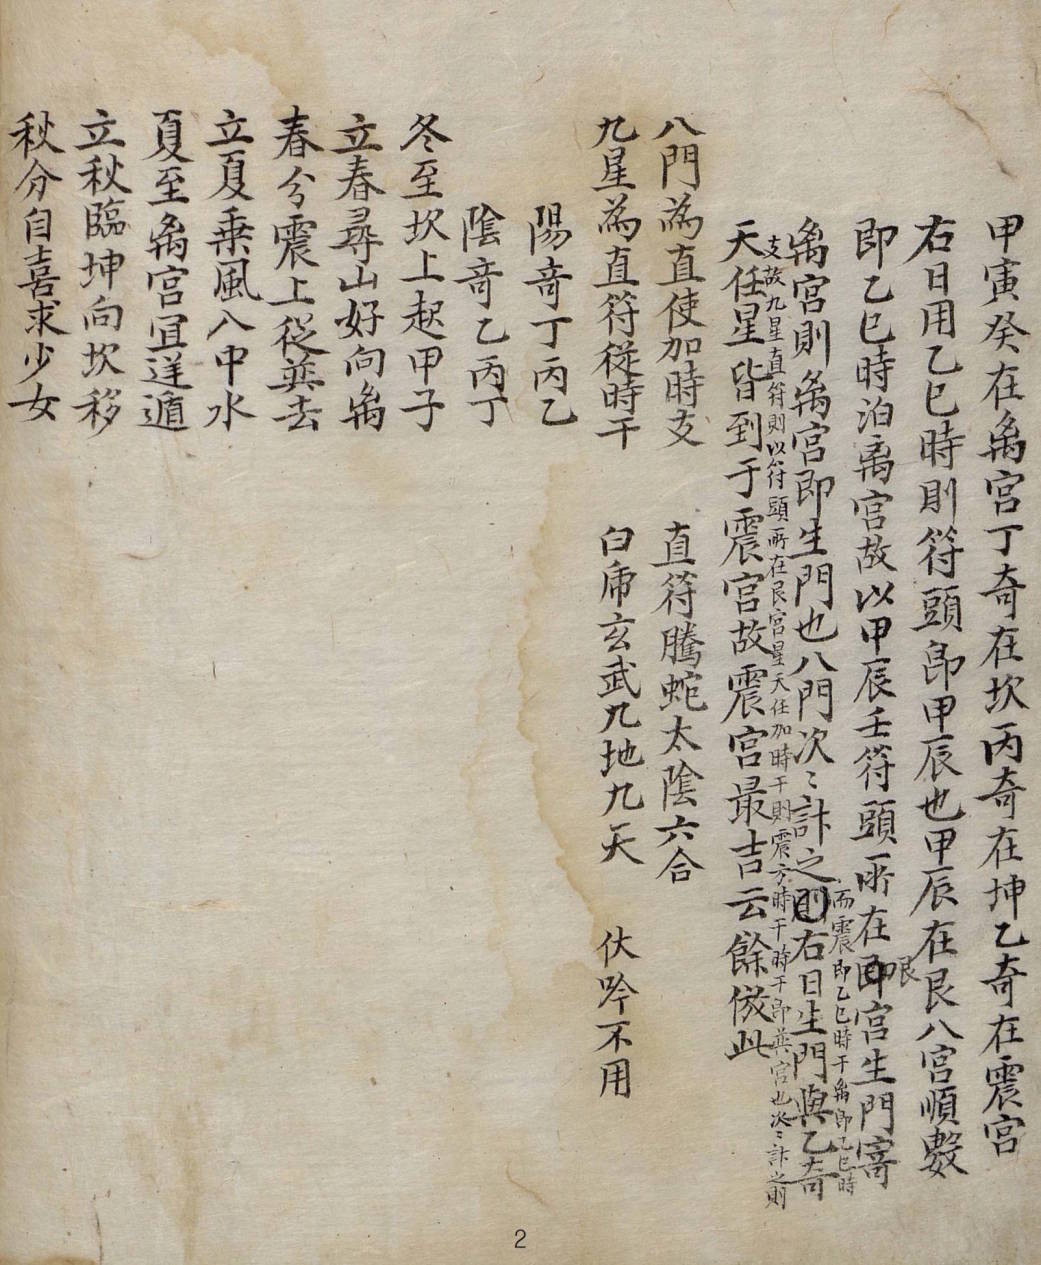 甲寅癸在离宮丁奇在坎丙奇在坤乙奇在震宮
右日用乙巳時則符頭即甲辰也甲辰在艮八宮順數
即乙巳時泊离宮故以甲辰壬符頭所在艮宮生門寄
而震即乙巳時干离即乙巳時
离宮則离宮即生門也八門次〻計之則右日生門與乙奇
支故九星直符則以符頭所在艮宮星天任加時干則震方時干時干即巽宮也次〻計之則
天任星皆到于震宮故震宮最吉云餘倣此
八門為直使加時支　直符騰蛇太陰六合
九星為直符從時干　白虎玄武九地九天　伏吟不用
陽奇丁丙乙
陰奇乙丙丁
冬至坎上起甲子
立春尋山好向离
春分震上從巽去
立夏乗風八中水
夏至离宮冝逆遁
立秋臨坤向坎移
秋分自喜求少女